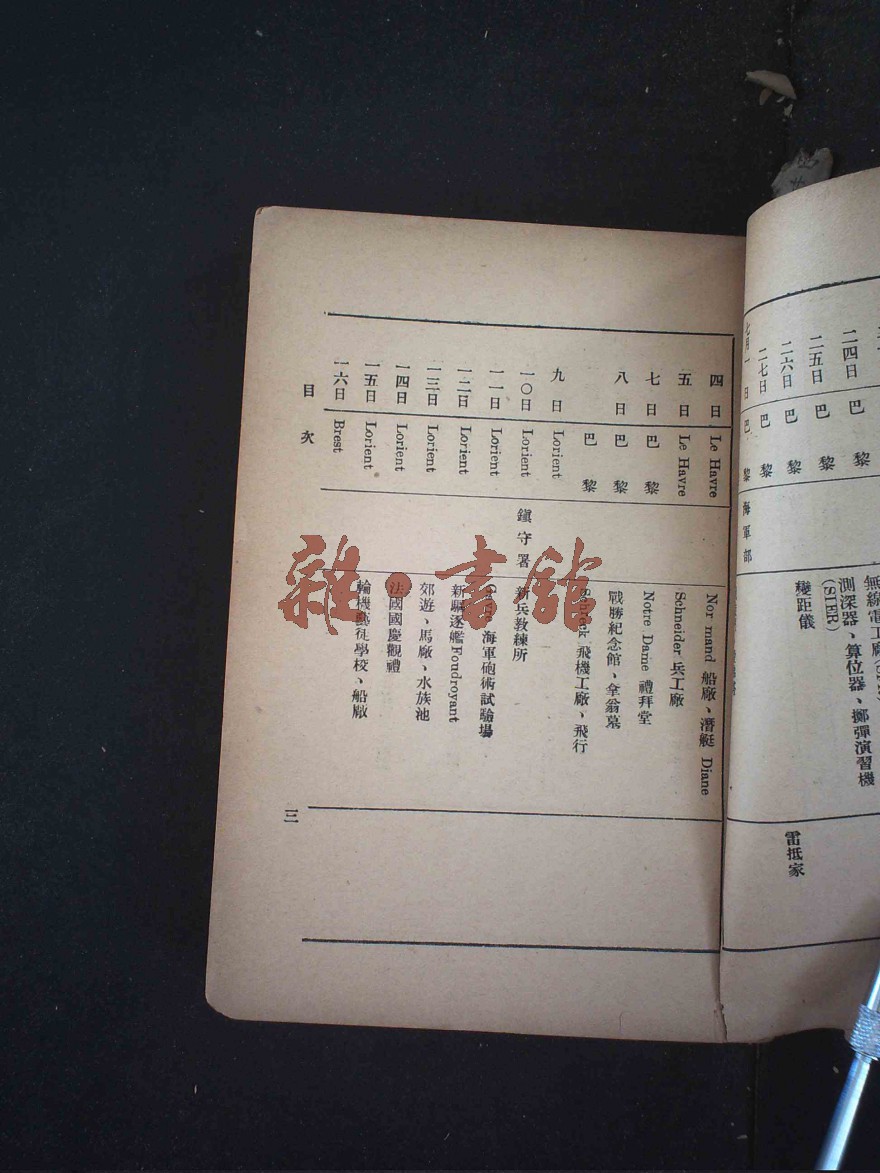 二四日 巴黎 測深器、算位器、擲彈演習機
二五日 巴黎 (SIER)
二六日 巴黎 變距儀 雷抵家
二七日 巴黎
七月一日 巴黎 海軍部
四日 Le Havre Nor mand 船廠、潛艇 Diane
五日 Le Havre Schneider 兵工廠
七日 巴黎 Notre Dame 禮拜堂
八日 巴黎 戰勝紀念館、拿翁墓
巴黎 Schreck 飛機工廠、飛行
九日 Lorient
一〇日 Lorient 鎮守署 新兵教練所
一一日 Lorient 海軍砲術試驗場
一二日 Lorient 新驅逐艦Foudroyant
一三日 Lorient 郊遊、馬廠、水族池
一四日 Lorient 法國國慶觀禮
一五日 Lorient 輪機藝徒學校、船廠
一六日 Brest
目次
三
雜·書館